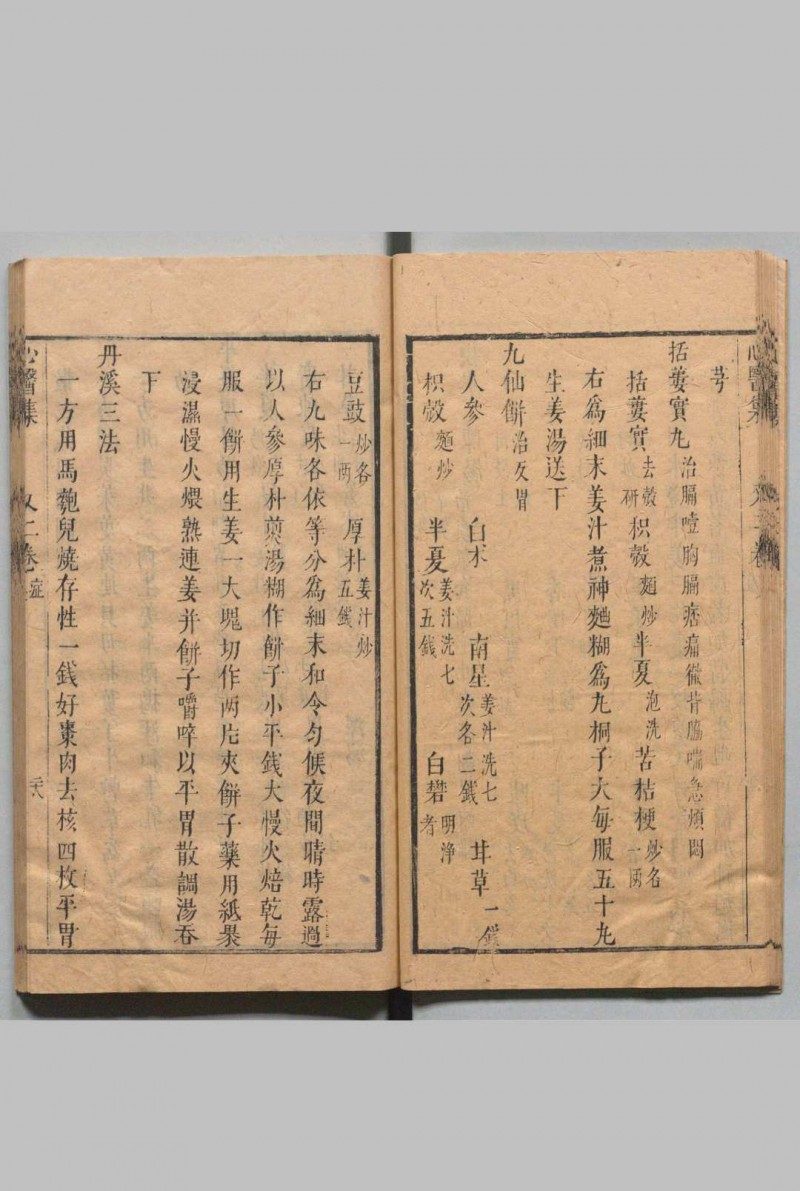 心醫集
芎
括蔞實丸治膈噎胸膈痞痛徹背脇喘急煩悶
括蔞實去殼研枳殼麵炒半夏泡洗苦桔梗炒各一兩
右爲細末姜汁煮神麯糊爲丸桐子大每服五十丸
生姜湯送下
九仙餅治反胃
人參 白朮 南星姜汁洗七次各二錢 甘草一錢
枳殼麵炒 半夏姜汁洗七次五錢 白礬明淨者
豆豉炒各一兩 厚朴姜汁炒五錢
右九味各依等分爲細末和令勻候夜間晴時露過
以人參厚朴煎湯糊作餅子小平錢大慢火焙乾每
服一餅用生姜一大塊切作兩片夾餅子藥用紙裹
浸濕慢火煨熟連姜并餅子嚼啐以平胃散調湯吞
下
丹溪三法
一方用馬䶉兒燒存性一錢好棗肉去核四枚平胃
心醫集 又二卷 症 二八